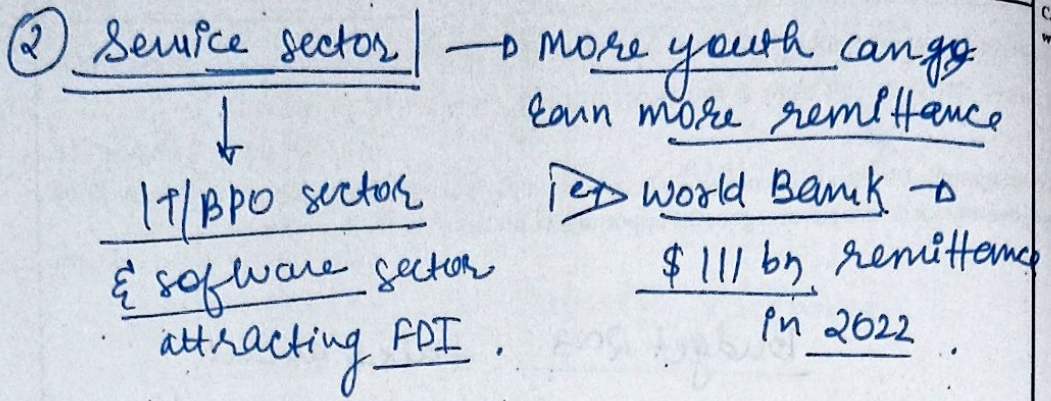 ② Service sector → More youth can go
earn more remittance
↓
IT/BPO sector
& software sector
attracting FDI.
eg → World Bank →
$111 bn remittance
in 2022.